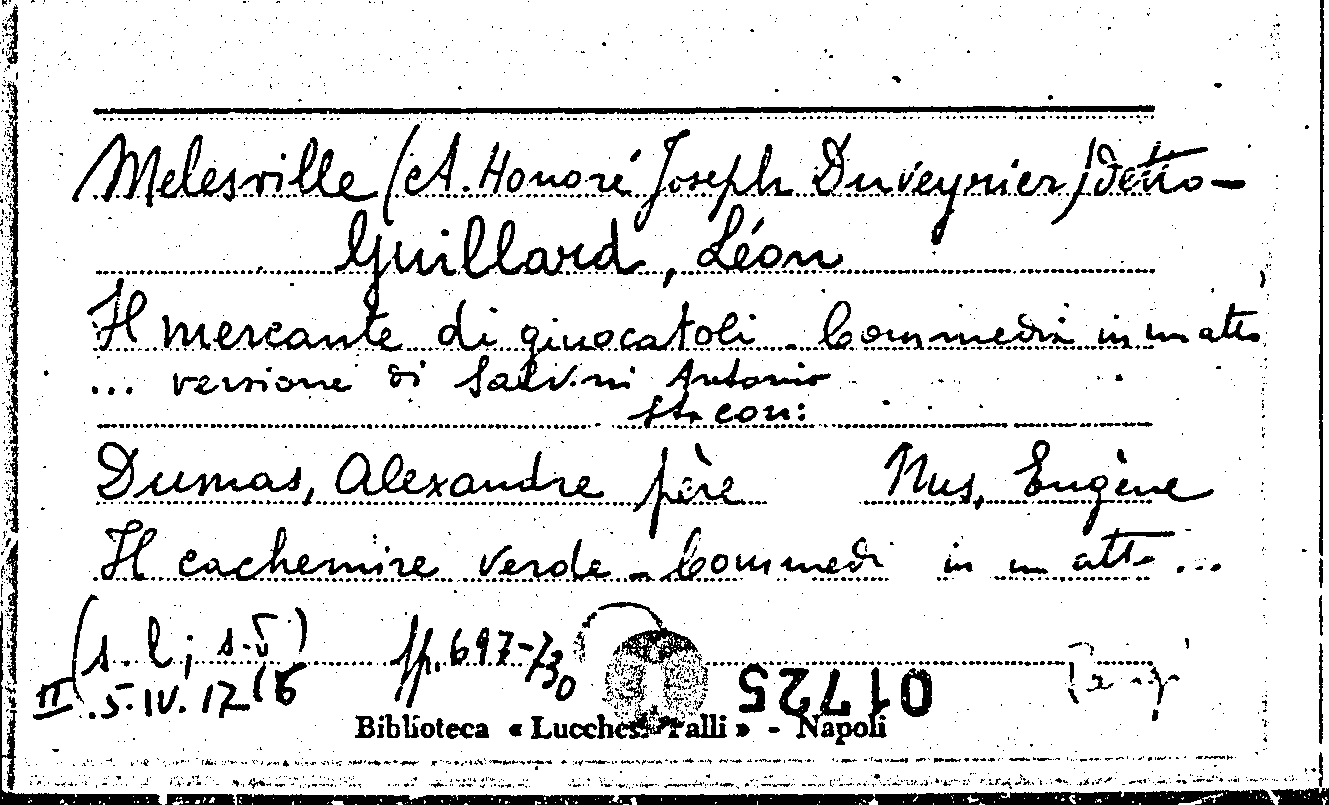 Melesville (A. Honoré Joseph Duveyrier) detto
Guillard, Léon
Il mercante di giuocatoli. Commedia in un atto
... versione di Salvini Antonio
Sta con:
Dumas, Alexandre père Nus, Eugène
Il cachemire verde - Commedi in un atto ...
(s. l; s.d)
pp. 697-730
II .5.IV.17(6
01725
Biblioteca « Lucchesi Palli » - Napoli